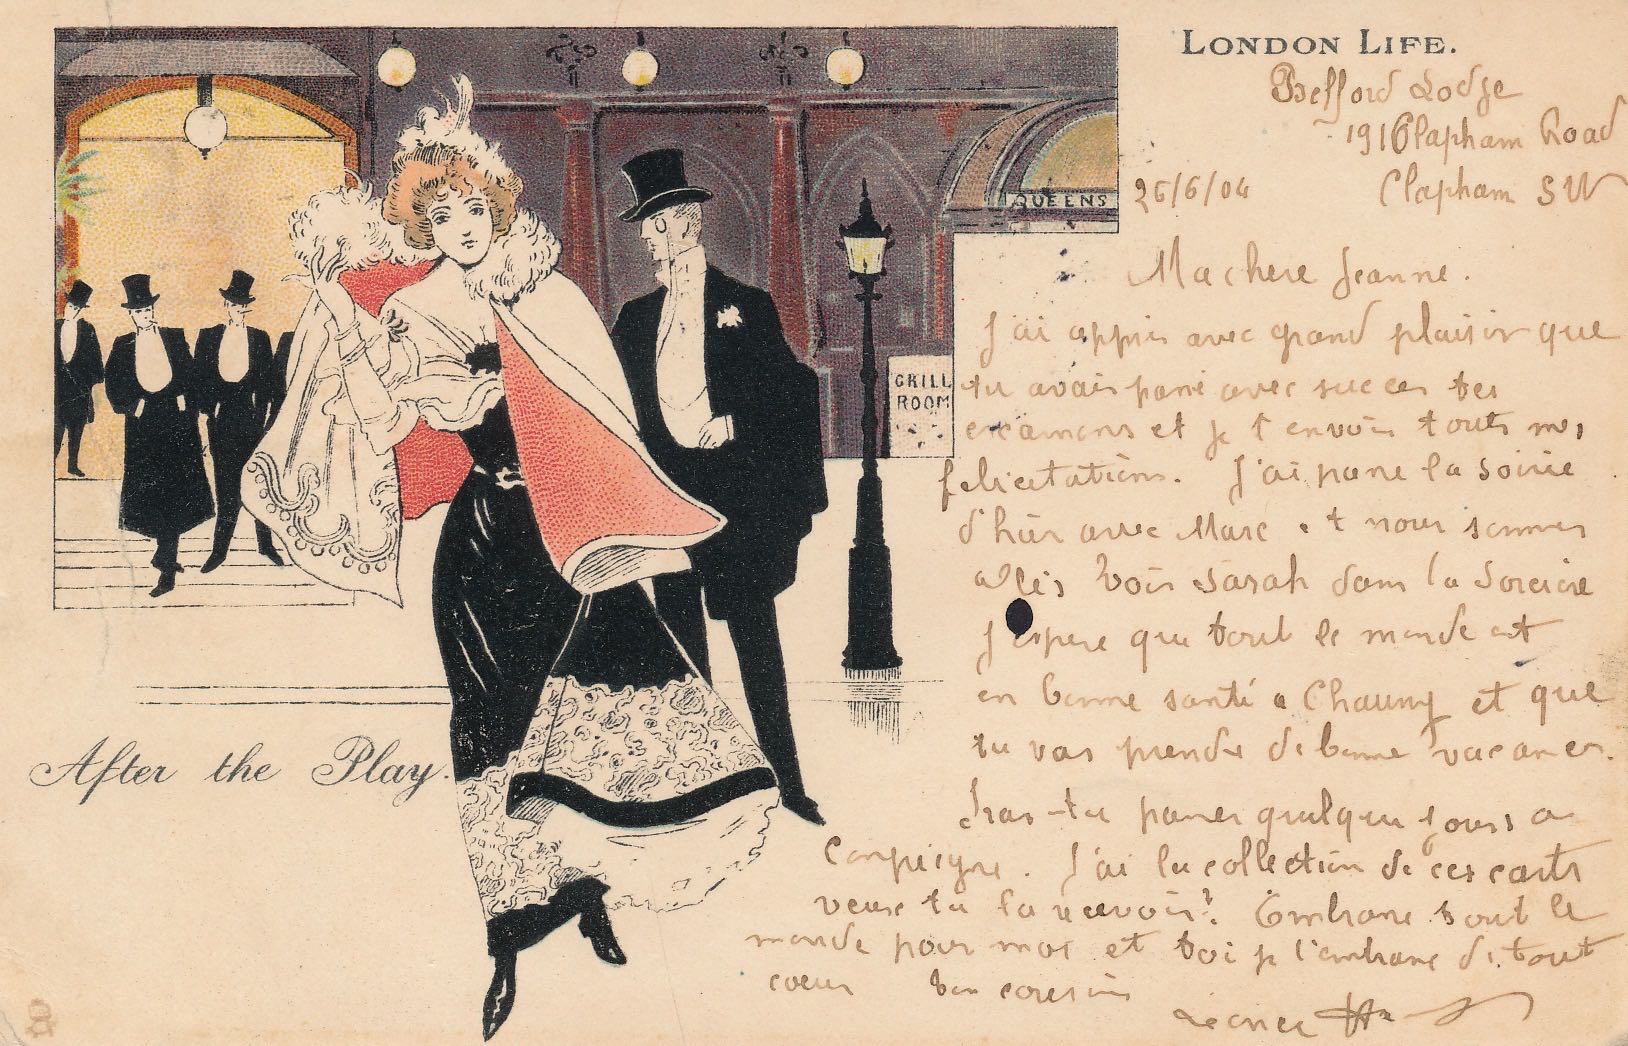 LONDON LIFE.
Belfford Lodge
191 Clapham Road
26/6/04 Clapham SW
QUEENS
GRILL
ROOM
After the Play.
Ma chere Jeanne.
J'ai appris avec grand plaisir que
tu avais passé avec succes tes
examens et je t'envoie toutes mes
felicitations. J'ai passe la soirée
d'hier avec Marc et nous sommes
allés voir Sarah dans la Sorciere
J'espere que tout le monde est
en bonne santé a Chauny et que
tu vas prendre de bonne vacances.
Iras-tu passer quelques jours a
Compiegne. J'ai la collection de ces cartes
veux tu la recevoir? Embrasse tout le
monde pour moi et toi je t'embrasse de tout
coeur ton cousin
Léonce